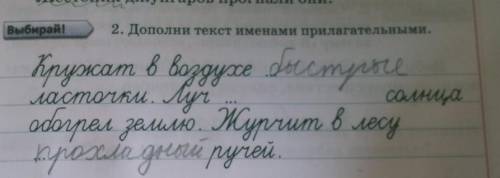 Выбирай!
2. Дополни текст именами прилагательными.
Кружат в воздухе быстрые
ласточки. Луч ... солнца
обогрел землю. Журчит в лесу
прохладный ручей.